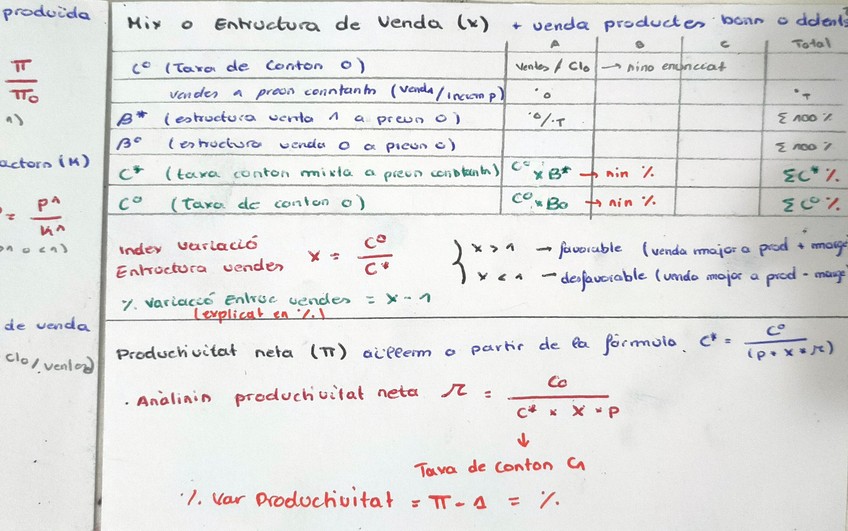 produïda
π
π₀
1)
actors (K)
= P^1
K^1
de venda
Clo/ventes)
Mix o Estructura de Venda (x) + venda productes bons o dolents?
A B C Total
C⁰ (Taxa de Costos 0) Ventes / Clo → sino enunciat
vendes a preus constants (venda/increm p) ·0 ·T
B* (estructura venta 1 a preus 0) ·0/·T Σ 100 %
B⁰ (estructura venda 0 a preus 0) Σ 100 %
C* (taxa costos mixta a preus constants) C⁰ × B* → sin % ΣC* %
C⁰ (Taxa de costos 0) C⁰ × B₀ → sin % ΣC⁰ %
Index variació
Estructura vendes x = C⁰ / C*
x > 1 → favorable (venda major a prod + marge
x < 1 → desfavorable (venda major a prod - marge
% Variació Estruc vendes = x - 1
(explicat en %)
Productivitat neta (π) aïllem a partir de la fórmula. C* = C⁰ / (p * x * π)
· Anàlisis productivitat neta π = C₀ / C* × X × P
↓
Taxa de costos C1
% Var Productivitat = π - 1 = %